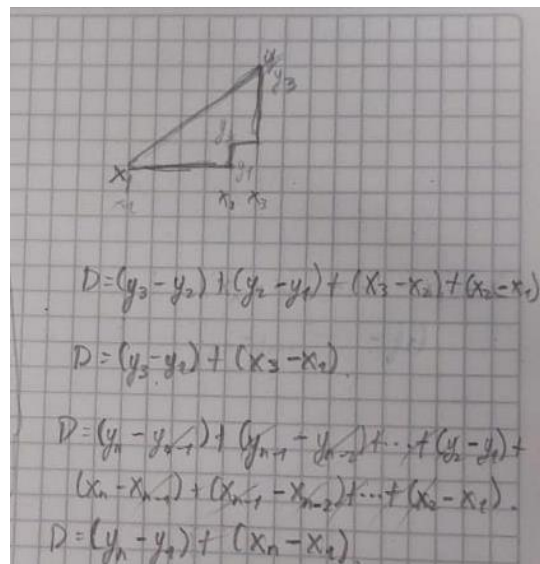 y
y3
x
y2
y1
x1
x2 x3
D=(y3-y2)+(y2-y1)+(x3-x2)+(x2-x1)
D=(y3-y1)+(x3-x1).
D=(yn-yn-1)+(yn-1-yn-2)+...+(y2-y1)+
(xn-xn-1)+(xn-1-xn-2)+...+(x2-x1).
D=(yn-y1)+(xn-x1)